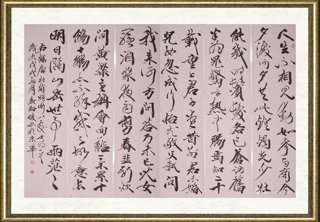 人生不相見動如參與商今
夕復何夕共此燈燭光少壯
能幾時鬢髮各已蒼訪舊
半為鬼驚呼熱中腸焉知二十
載重上君子堂昔別君未婚
兒女忽成行怡然敬父執問
我來何方問答乃未已兒女
羅酒漿夜雨剪春韭新炊
間黃粱主稱會面難一舉累十
觴十觴亦不醉感子故意長
明日隔山岳世事兩茫茫